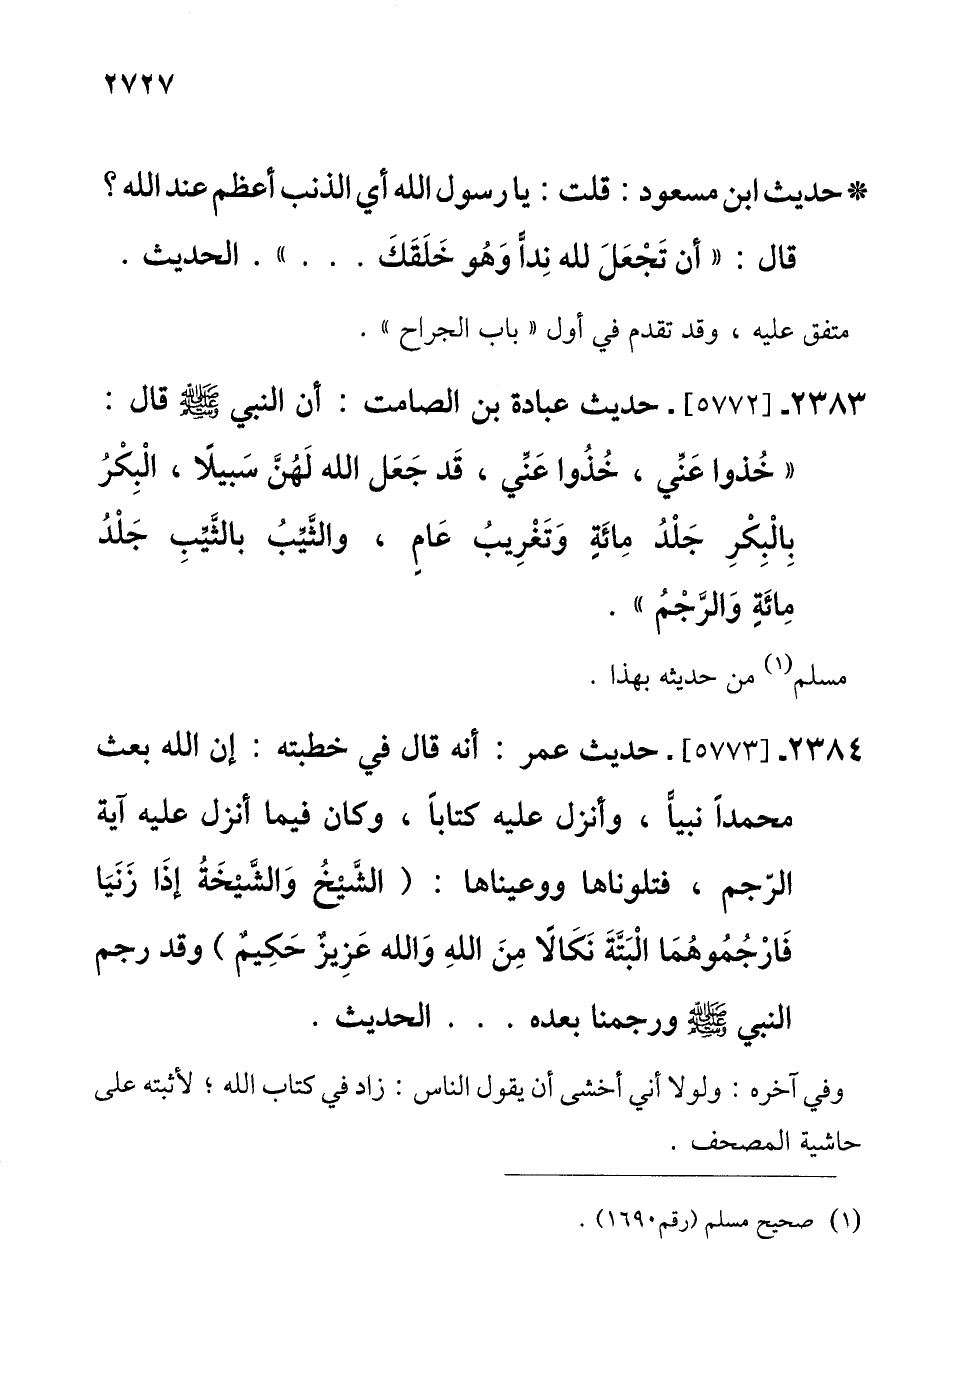 ٢٧٢٧
* حديث ابن مسعود : قلت : يا رسول الله أي الذنب أعظم عند الله ؟
قال : « أن تَجْعَلَ لله نِداً وَهُو خَلَقَكَ . . . » . الحديث .
متفق عليه ، وقد تقدم في أول « باب الجراح » .
٢٣٨٣ـ [٥٧٧٢] . حديث عبادة بن الصامت : أن النبي ﷺ قال :
« خُذوا عَنِّي ، خُذُوا عَنِّي ، قَد جَعَل الله لَهُنَّ سَبيلًا ، الْبِكْرُ
بِالْبِكْرِ جَلْدُ مِائَةٍ وَتَغْرِيبُ عَامٍ ، والثَّيِّبُ بالثَّيِّبِ جَلْدُ
مِائَةٍ وَالرَّجْمُ » .
مسلم(١) من حديثه بهذا .
٢٣٨٤ـ [٥٧٧٣] . حديث عمر : أنه قال في خطبته : إن الله بعث
محمداً نبياً ، وأنزل عليه كتاباً ، وكان فيما أنزل عليه آية
الرّجم ، فتلوناها ووعيناها : ( الشَّيْخُ وَالشَّيْخَةُ إذَا زَنَيَا
فَارْجُمُوهُمَا الْبَتَّةَ نَكَالًا مِنَ اللهِ وَالله عَزِيزٌ حَكِيمٌ ) وقد رجم
النبي ﷺ ورجمنا بعده . . . الحديث .
وفي آخره : ولولا أني أخشى أن يقول الناس : زاد في كتاب الله ؛ لأثبته على
حاشية المصحف .
(١) صحيح مسلم (رقم١٦٩٠) .